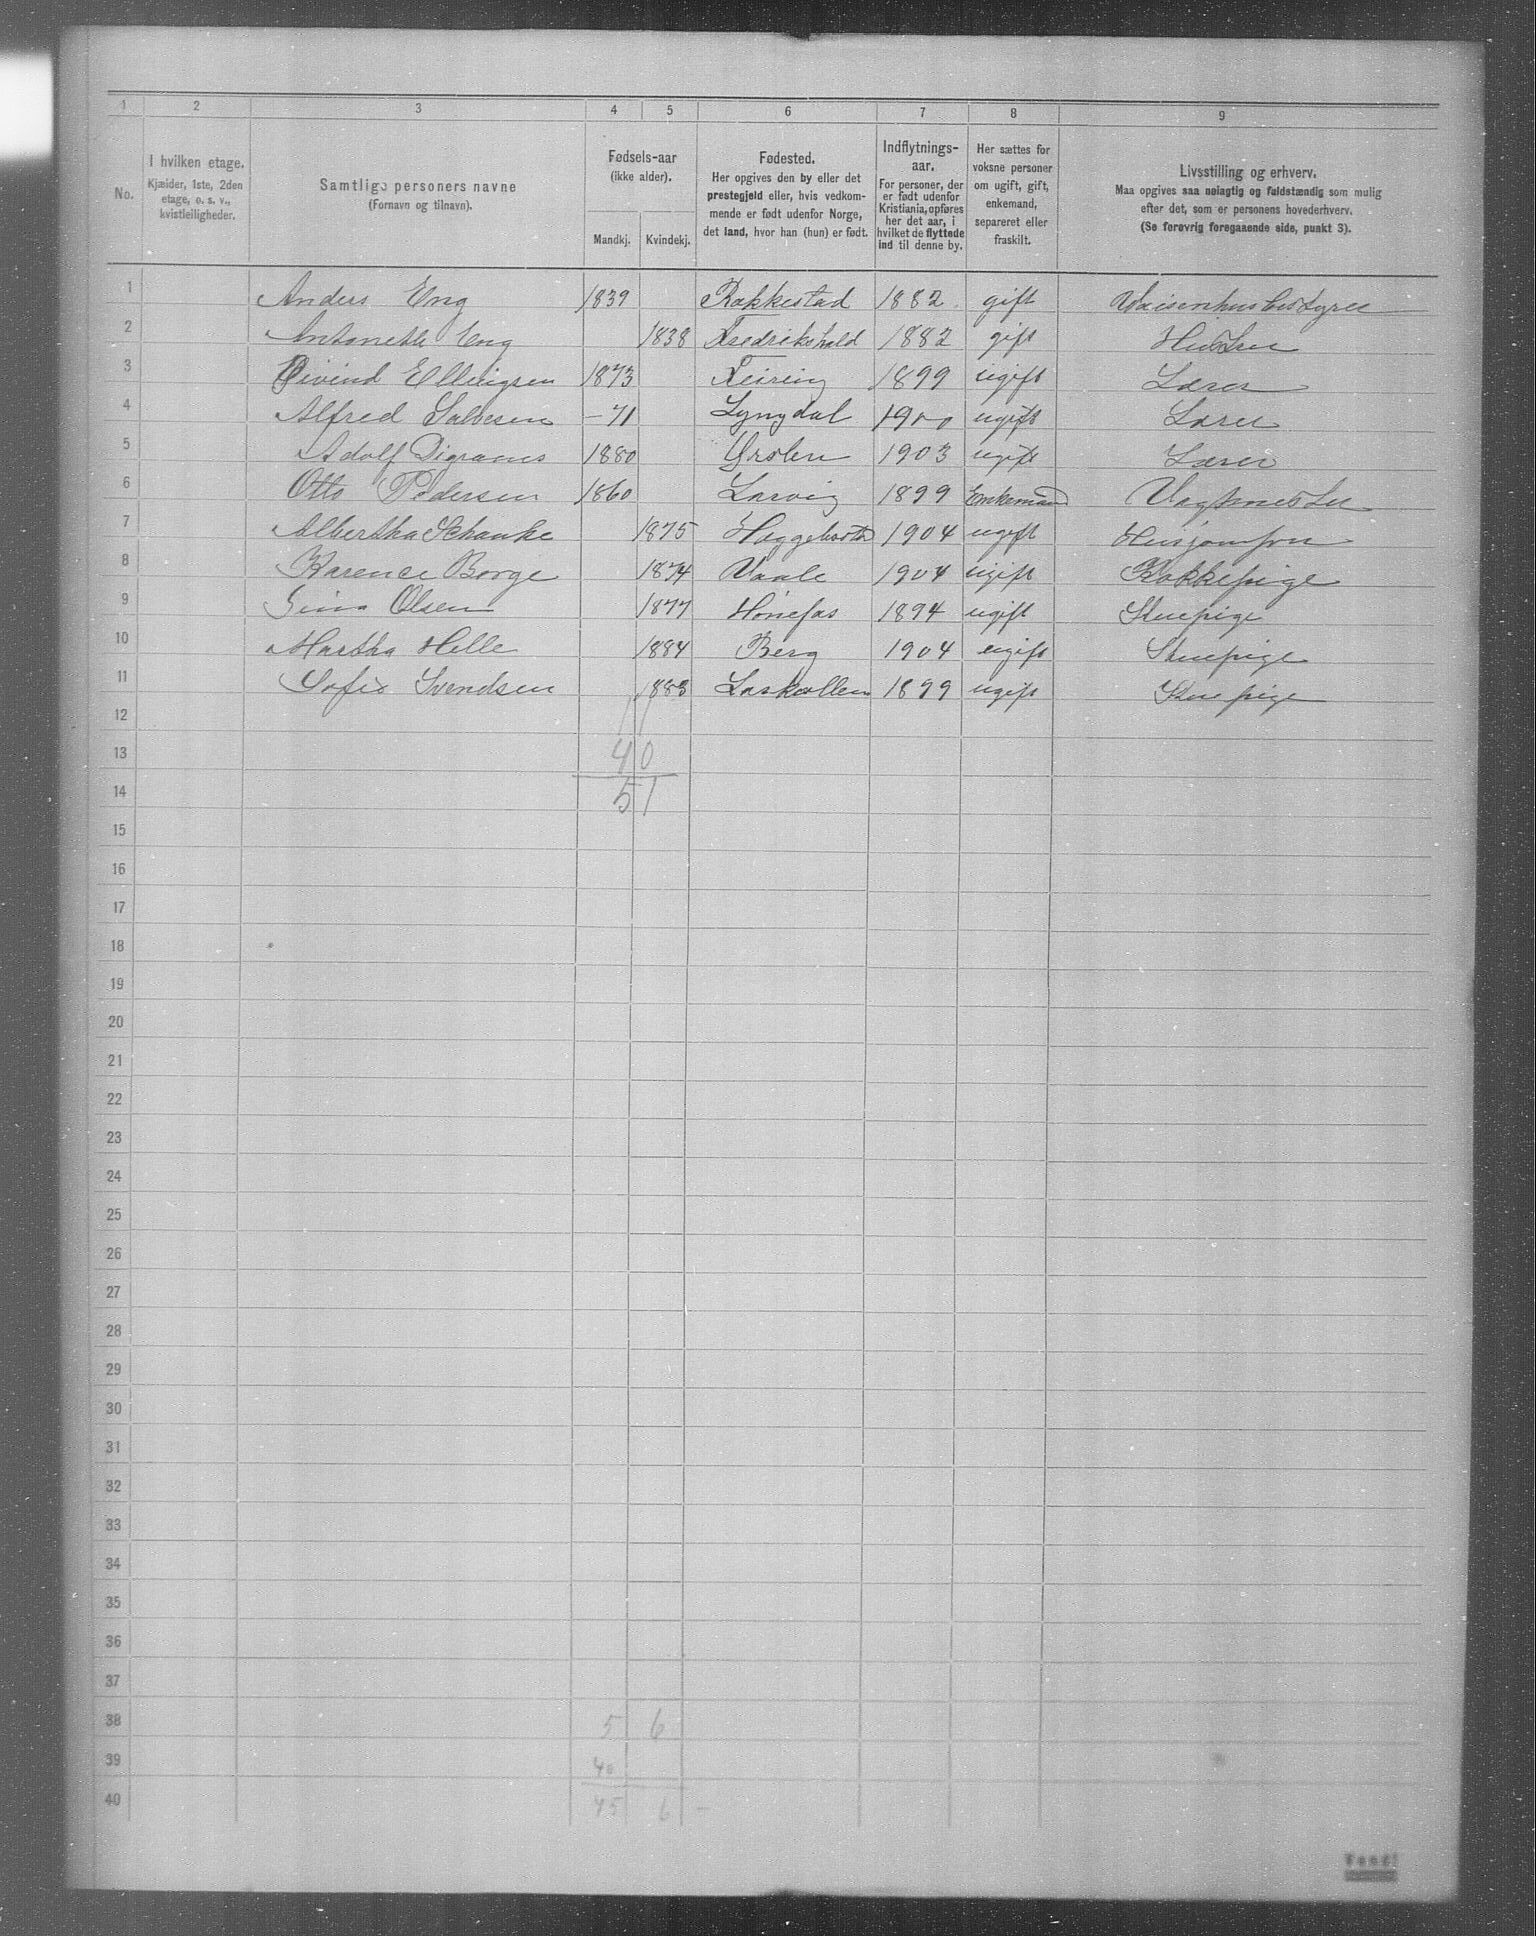 1 2 3 4 5 6 7 8 9
No.
I hvilken etage.
Kjælder, 1ste, 2den
etage, o. s. v.,
kvistleiligheder.
Samtlige personers navne
(Fornavn og tilnavn).
Fødsels-aar
(ikke alder).
Mandkj. Kvindekj.
Fødested.
Her opgives den by eller det
prestegjeld eller, hvis vedkom-
mende er født udenfor Norge,
det land, hvor han (hun) er født.
Indflytnings-
aar.
For personer, der
er født udenfor
Kristiania, opføres
her det aar, i
hvilket de flyttede
ind til denne by.
Her sættes for
voksne personer
om ugift, gift,
enkemand,
separeret eller
fraskilt.
Livsstilling og erhverv.
Maa opgives saa nøiagtig og fuldstændig som mulig
efter det, som er personens hovederhverv.
(Se forøvrig foregaaende side, punkt 3).
1 Anders Eng 1839 Rakkestad 1882 gift Vaisenhusbestyrer
2 Antonette Eng 1838 Fredrikshald 1882 gift Hustru
3 Øivind Ellingsen 1873 Feiring 1899 ugift Lærer
4 Alfred Salvesen -71 Lyngdal 1900 ugift Lærer
5 Adolf Digranes 1880 Ørsten 1903 ugift Lærer
6 Otto Pedersen 1860 Larvig 1899 Enkemand Vagtmester
7 Albertha Schanke 1875 1904 ugift Husjomfru
8 Karence Borge 1874 Vaale 1904 ugift Kokkepige
9 Gina Olsen 1877 Hønefos 1894 ugift Stuepige
10 Martha Helle 1884 Berg 1904 ugift Stuepige
11 Sofie Svendsen 1883 Larkollen 1899 ugift Stuepige
12 11
13 40
14 51
15
16
17
18
19
20
21
22
23
24
25
26
27
28
29
30
31
32
33
34
35
36
37
38 5 6
39 40
40 45 6 -
Vend!